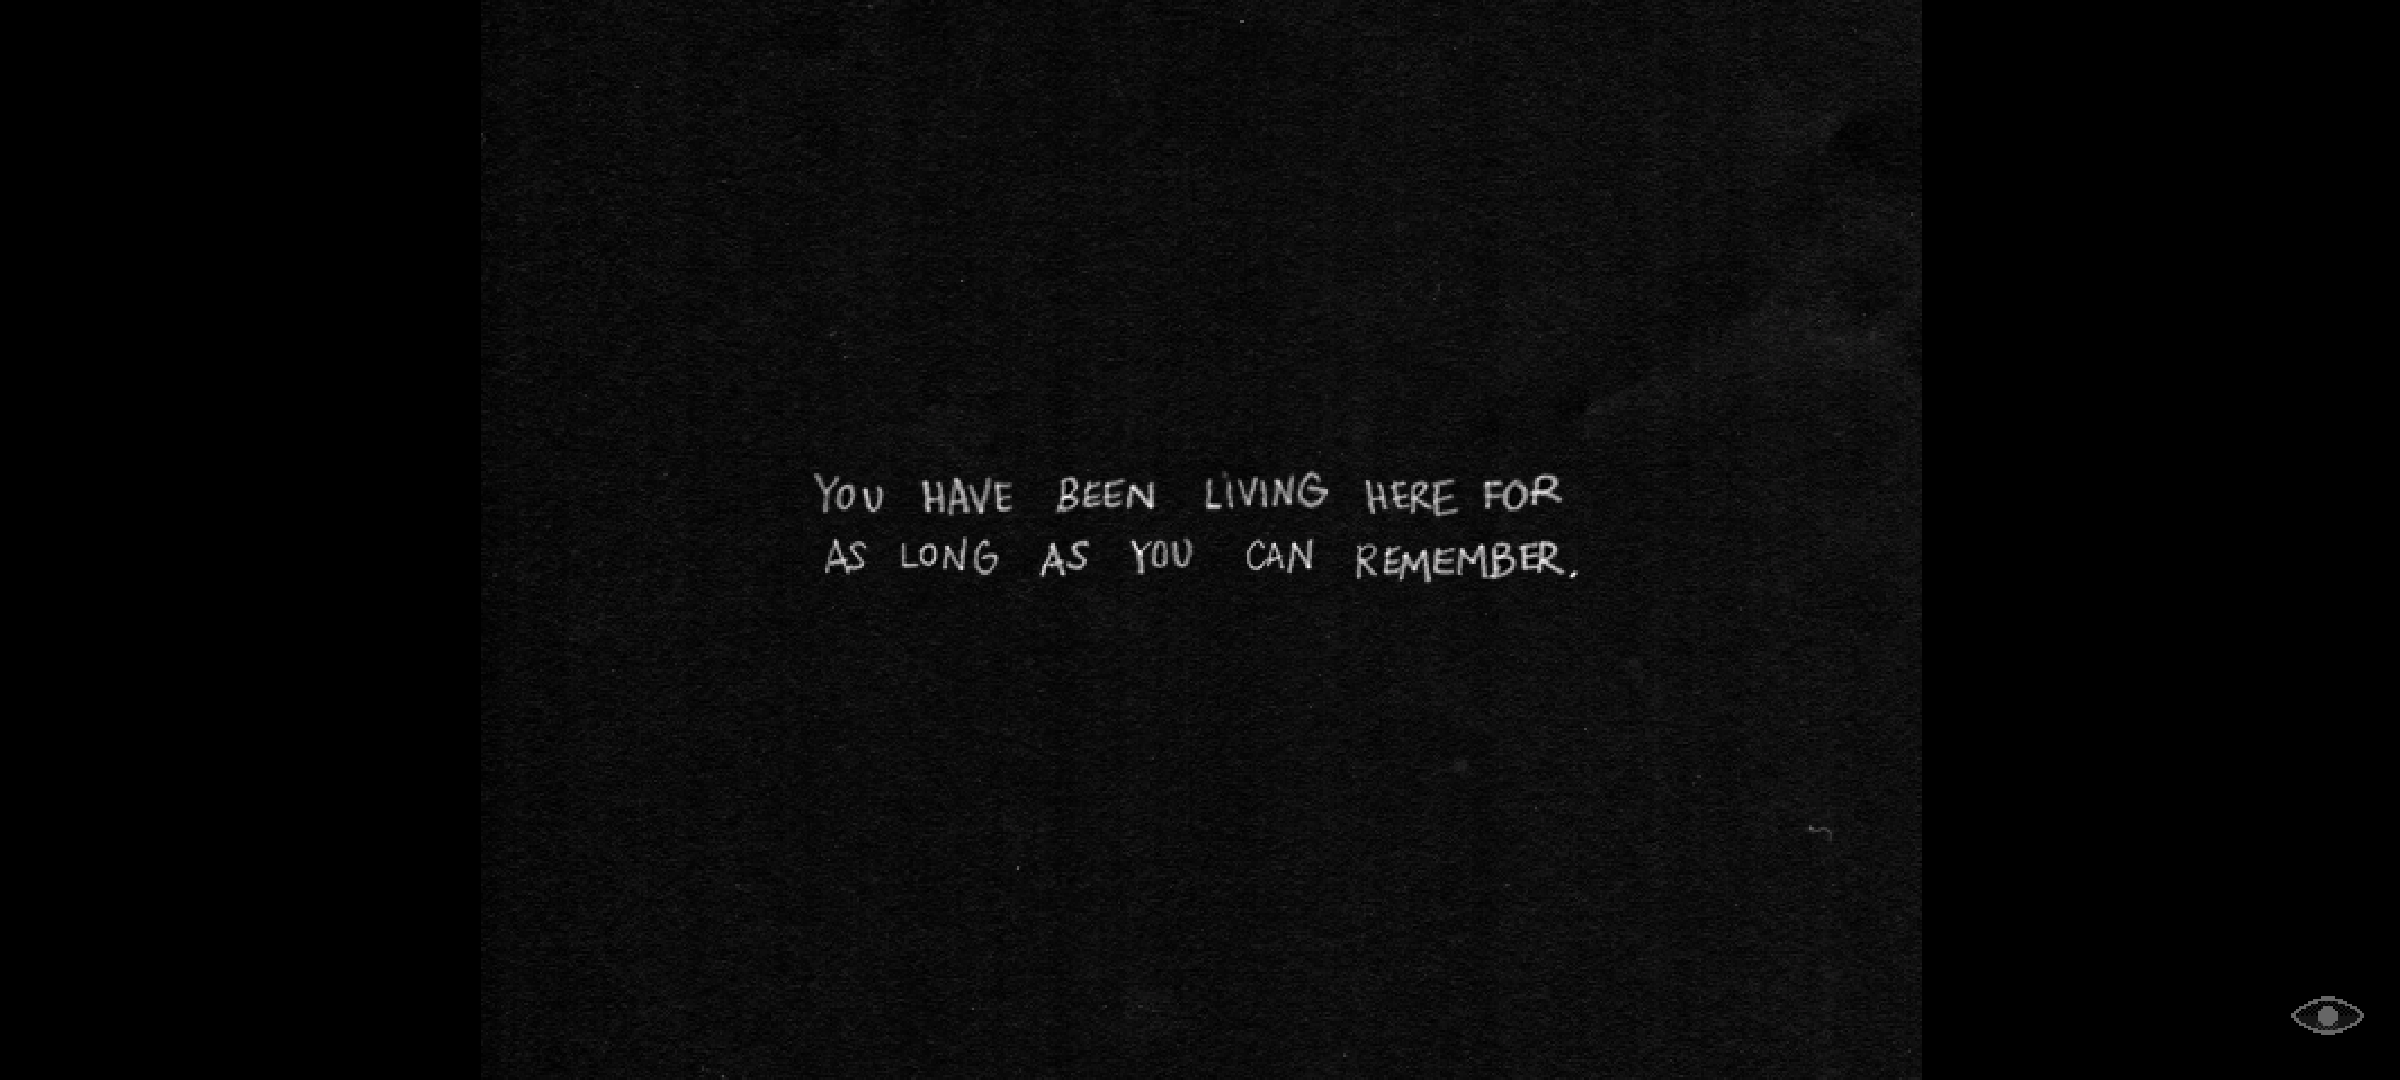 YOU HAVE BEEN LIVING HERE FOR
AS LONG AS YOU CAN REMEMBER.